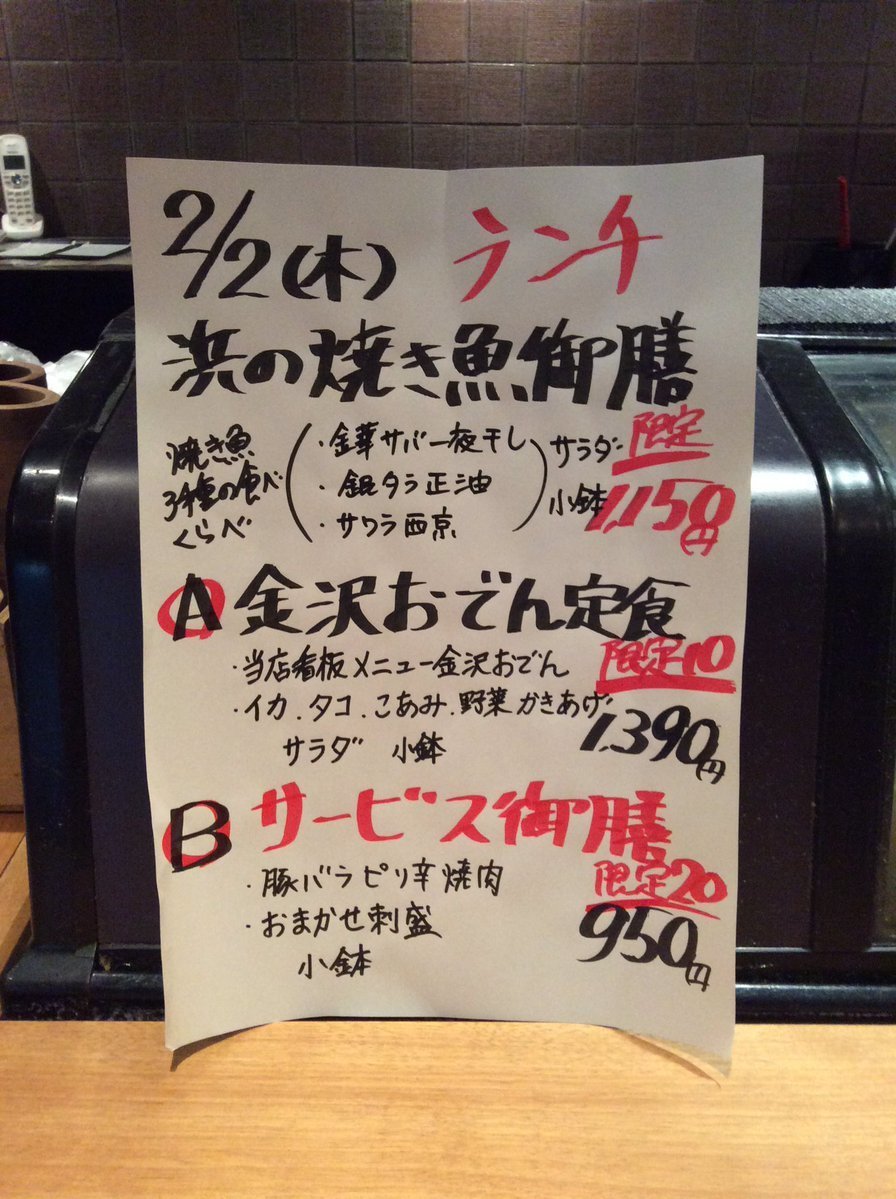 2/2(木) ランチ
浜の焼き魚御膳
焼き魚
3種の食べ
くらべ
・金華サバ一夜干し
・銀タラ正油
・サワラ西京
サラダ
小鉢
限定
1,150円
A 金沢おでん定食
・当店看板メニュー金沢おでん
限定10
・イカ.タコ.こあみ.野菜かきあげ
サラダ 小鉢
1,390円
B サービス御膳
・豚バラピリ辛焼肉
限定20
・おまかせ刺盛
950円
小鉢